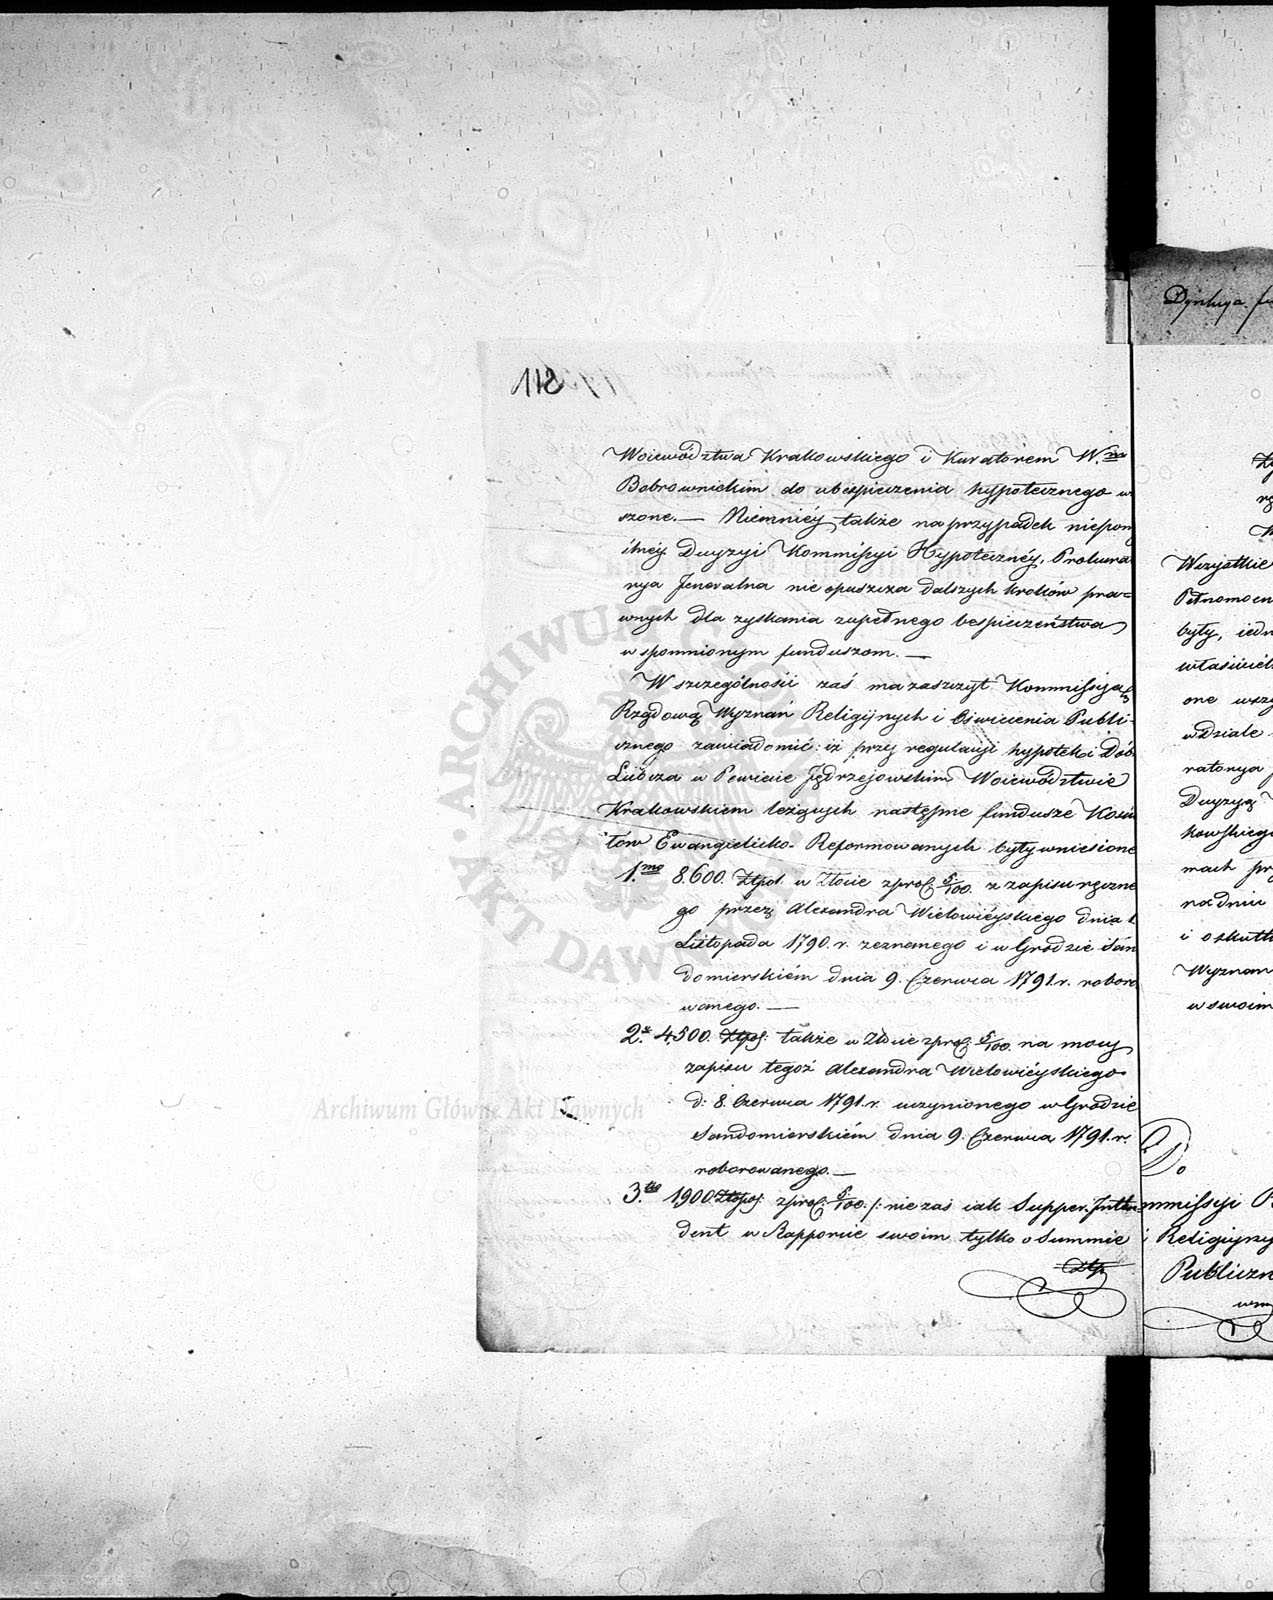 118
Województwa Krakowskiego i Kuratorem W.na
Bobrownickim do ubespieczenia hypotecznego w
szone. — Niemniéy także na przypadek niepom
ślnéy Decyzyi Kommissyi Hypotecznéy, Prokura
rya Jeneralna nie opuszcza dalszych kroków pra=
wnych dla zyskania zupełnego bespieczeństwa
wspomnionym funduszom. —
W szczególności zaś ma zaszczyt Kommissyą
Rządową Wyznań Religiynych i Oświecenia Publi
cznego zawiadomić: iż przy regulacyi hypoteki Dób
Lubcza w Powiecie Jędrzejowskim Województwie
Krakowskiem leżących następne fundusze Kościo
łów Ewangelicko-Reformowanych były wniesione
1.mo 8.600. Złpol. w Złocie z proc. 5/100. z zapisu ręczne
go przez Alexandra Wielowiéyskiego dnia
Listopada 1790. r. zeznanego i w Grodzie Sán
domierskiém dnia 9. Czerwca 1791. r. roboro
wanego. —
2.o 4,500. Złpol: także w Złocie z proc: 5/100. na mocy
zapisu tegoż Alexandra Wielowiéyskiego
d: 8. Czerwca 1791. r. uczynionego w Grodzie
Sandomierskiém dnia 9. Czerwca 1791. r.
roborowanego. —
3.tio 1900 Złpol: z proc: 5/100. /: nie zaś iak Supper-Inten
dent w Rapporcie swoim tylko o Summie
Złp
Dyrekcya
Wszystkie
Pełnomocn
były, iedn
właściciel
one wszy
wdziale
ratorya
Decyzyą
kowskiego
mach prz
na dniu
i o skutk
Wyznan
w swoim
Do
mmissyi
i Religiyny
Publiczn
Archiwum Główne Akt Dawnych
ARCHIWUM GŁÓWNE
AKT DAWNYCH